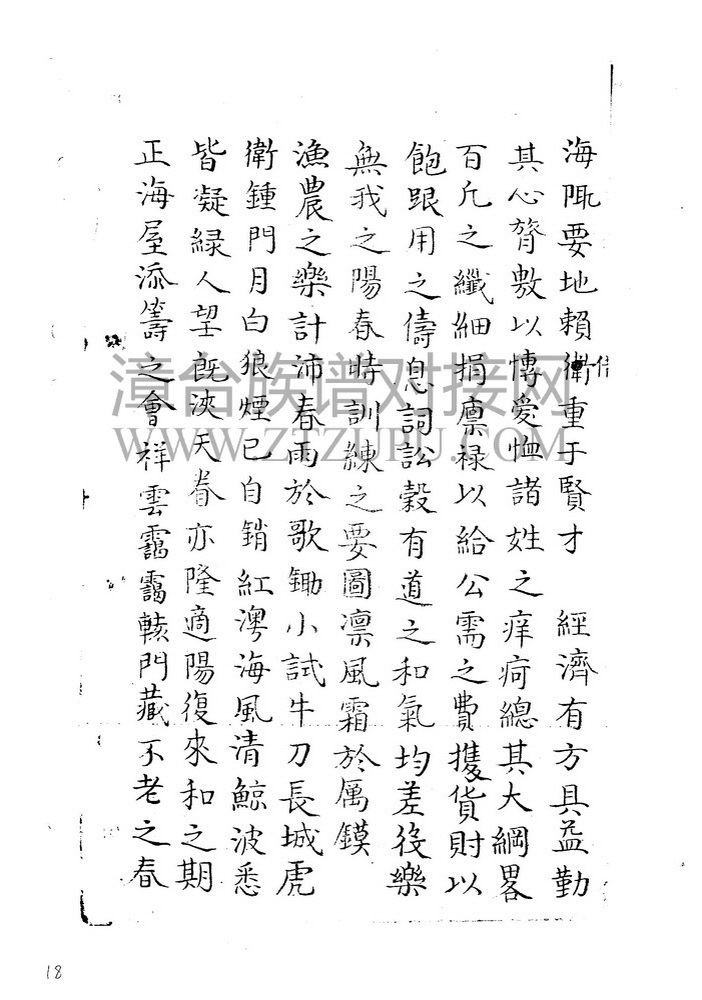 海陬要地賴衛重于賢才　經濟有方具益勤
其心膂敷以愽愛恤諸姓之痒疴總其大綱畧
百凡之纖細捐廪禄以給公需之費擭貨財以
飽跟用之儔息詞訟穀有道之和氣均差役樂
無我之陽春時訓練之要圖凛風霜於厲鏌
漁農之樂計沛春雨於歌鋤小試牛刀長城虎
衛鍾門月白狼煙已自銷紅澚海風清鯨波悉
皆凝緑人望既浹天眷亦隆適陽復來和之期
正海屋添籌之會祥雲靄靄轅門藏不老之春
漳台族谱对接网
WWW.ZTZUPU.COM
18